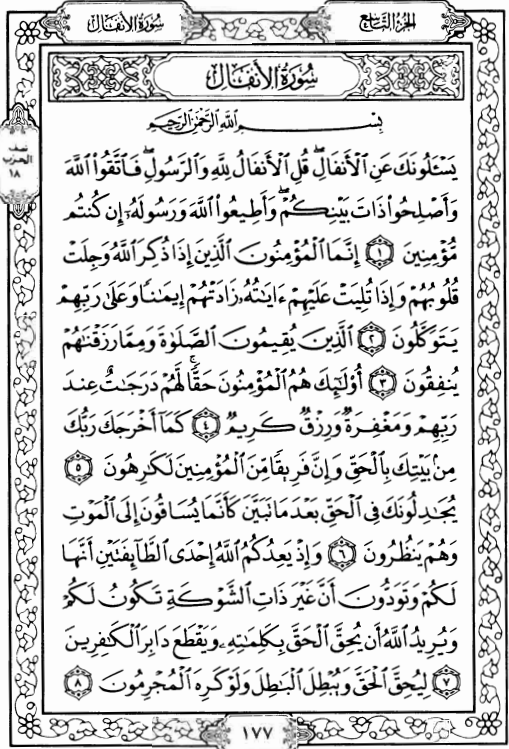 سُورَةُ الأَنفَال
الجُزْءُ التَّاسِع
سُورَةُ الأَنفَالِ
نصف
الحزب
١٨
بِسْمِ اللَّهِ الرَّحْمَٰنِ الرَّحِيمِ
يَسْـَٔلُونَكَ عَنِ ٱلْأَنفَالِۖ قُلِ ٱلْأَنفَالُ لِلَّهِ وَٱلرَّسُولِۖ فَٱتَّقُوا۟ ٱللَّهَ
وَأَصْلِحُوا۟ ذَاتَ بَيْنِكُمْۖ وَأَطِيعُوا۟ ٱللَّهَ وَرَسُولَهُۥٓ إِن كُنتُم
مُّؤْمِنِينَ ١ إِنَّمَا ٱلْمُؤْمِنُونَ ٱلَّذِينَ إِذَا ذُكِرَ ٱللَّهُ وَجِلَتْ
قُلُوبُهُمْ وَإِذَا تُلِيَتْ عَلَيْهِمْ ءَايَٰتُهُۥ زَادَتْهُمْ إِيمَٰنًا وَعَلَىٰ رَبِّهِمْ
يَتَوَكَّلُونَ ٢ ٱلَّذِينَ يُقِيمُونَ ٱلصَّلَوٰةَ وَمِمَّا رَزَقْنَٰهُمْ
يُنفِقُونَ ٣ أُو۟لَٰٓئِكَ هُمُ ٱلْمُؤْمِنُونَ حَقًّاۚ لَّهُمْ دَرَجَٰتٌ عِندَ
رَبِّهِمْ وَمَغْفِرَةٌ وَرِزْقٌ كَرِيمٌ ٤ كَمَآ أَخْرَجَكَ رَبُّكَ
مِنۢ بَيْتِكَ بِٱلْحَقِّ وَإِنَّ فَرِيقًا مِّنَ ٱلْمُؤْمِنِينَ لَكَٰرِهُونَ ٥
يُجَٰدِلُونَكَ فِى ٱلْحَقِّ بَعْدَ مَا تَبَيَّنَ كَأَنَّمَا يُسَاقُونَ إِلَى ٱلْمَوْتِ
وَهُمْ يَنظُرُونَ ٦ وَإِذْ يَعِدُكُمُ ٱللَّهُ إِحْدَى ٱلطَّآئِفَتَيْنِ أَنَّهَا
لَكُمْ وَتَوَدُّونَ أَنَّ غَيْرَ ذَاتِ ٱلشَّوْكَةِ تَكُونُ لَكُمْ
وَيُرِيدُ ٱللَّهُ أَن يُحِقَّ ٱلْحَقَّ بِكَلِمَٰتِهِۦ وَيَقْطَعَ دَابِرَ ٱلْكَٰفِرِينَ
٧ لِيُحِقَّ ٱلْحَقَّ وَيُبْطِلَ ٱلْبَٰطِلَ وَلَوْ كَرِهَ ٱلْمُجْرِمُونَ ٨
١٧٧